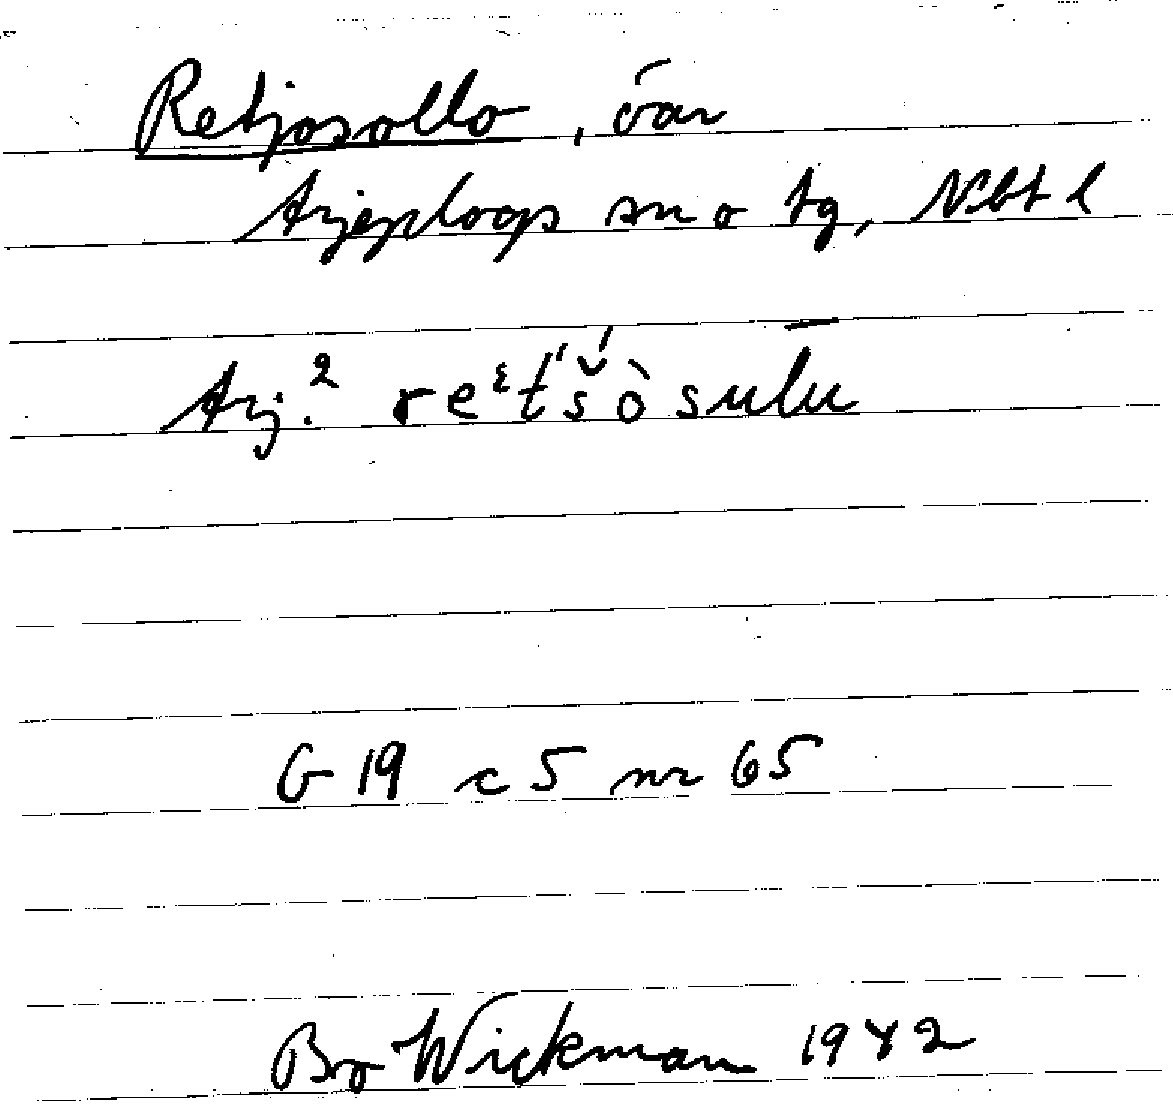 Retjosollo, öar
Arjeplogs sn o tg, Nbt l
Arj.² re
G 19 c 5 nr 65
Bo Wickman 1942